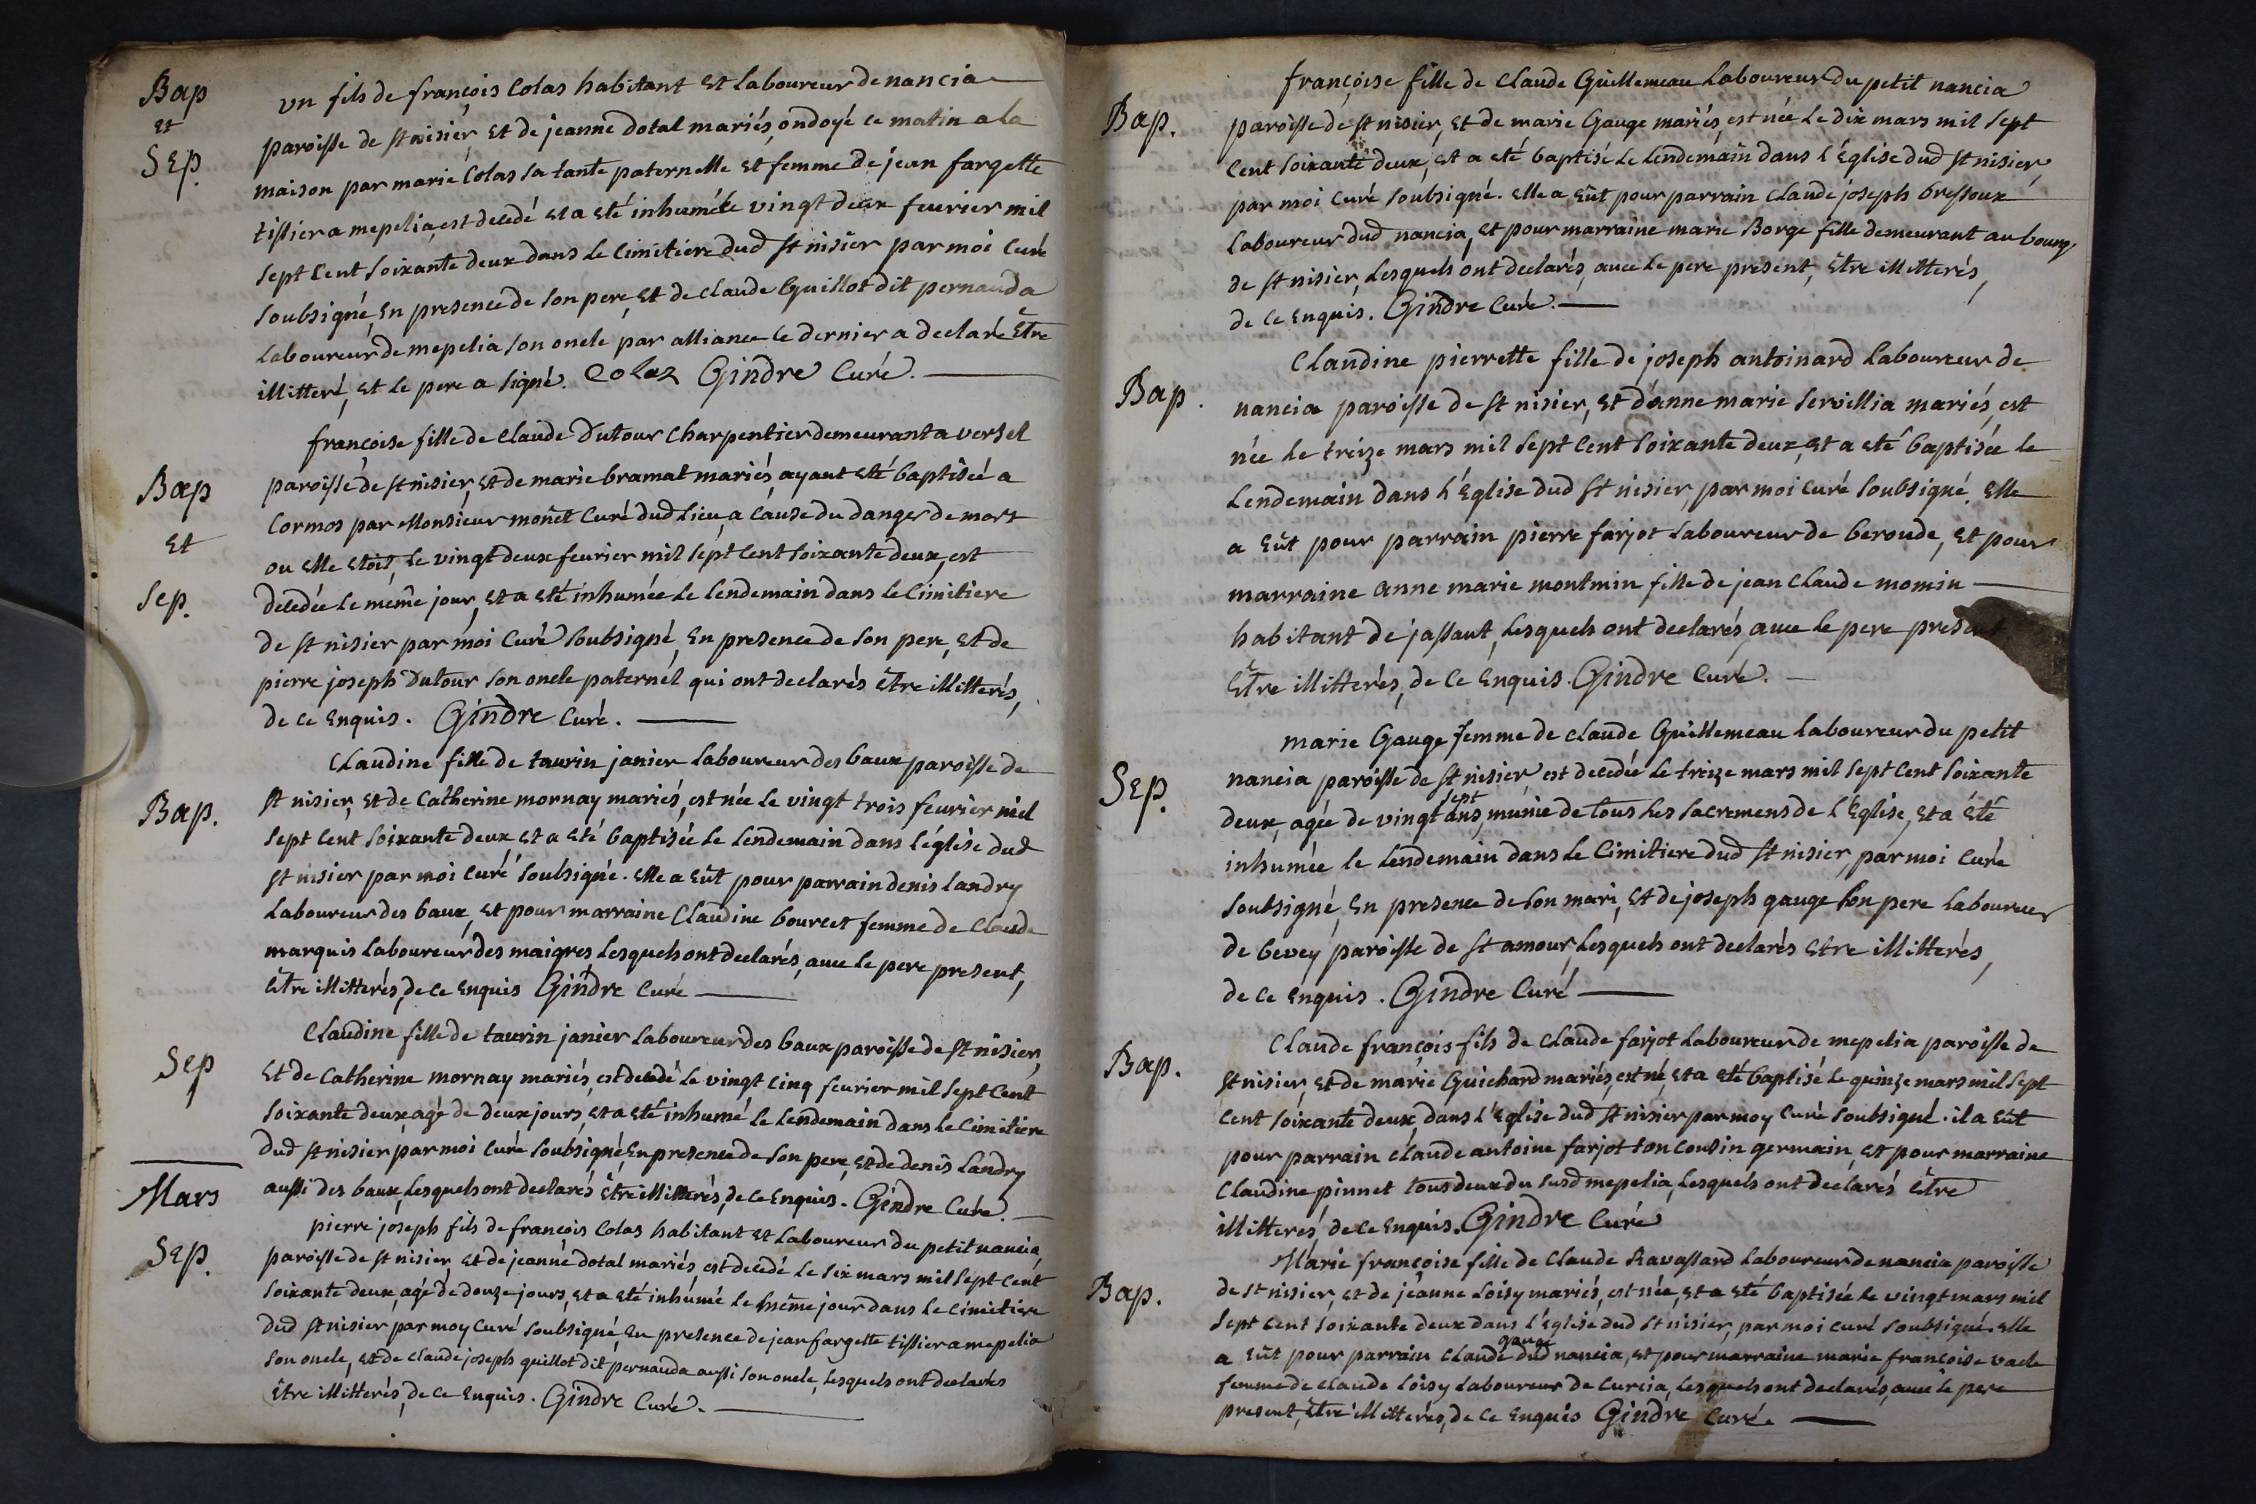 Bap
Et
Sep.
un fils de françois Colas habitant Et Laboureur de nancia
paroisse de st nisier, Et de jeanne dotal mariés, ondoyé ce matin a la
maison par marie Colas sa tante paternelle Et femme de jean fargette
tissier a mepelia, est decedé Et a eté inhumé le vingt deux feurier mil
sept Cent soixante deux dans le Cimitiere dud st nisier par moi Curé
soubsigné, En presence de son pere, Et de claude Guillot dit pernauda
Laboureur de mepelia son oncle par alliance ce dernier a declaré Etre
illitteré, Et le pere a signé. Colaz Gindre Curé.
Bap
Et
Sep.
françoise fille de claude Dutour Charpentier demeurant a versel
paroisse de st nisier, Et de marie bramat mariés, ayant Eté baptisée a
Cormos par Monsieur monet Curé dud Lieu, a cause du danger de mort
ou elle etoit, le vingt deux feurier mil sept Cent soixante deux, est
decedée le même jour, Et a eté inhumée le lendemain dans le Cimitiere
de st nisier par moi Curé soubsigné, En presence de son pere, Et de
pierre joseph Dutour son oncle paternel qui ont declarés Etre illitterés,
de ce Enquis. Gindre Curé.
Bap.
Claudine fille de taurin janier Laboureur des baux paroisse de
st nisier, Et de Catherine mornay mariés, est née le vingt trois feurier mil
sept Cent soixante deux Et a eté baptisée le lendemain dans l'église dud
st nisier par moi Curé soubsigné. Elle a Eût pour parrain denis landry
Laboureur des baux, Et pour marraine Claudine bourcet femme de claude
marquis Laboureur des maigres lesquels ont declarés, auec le pere present,
Etre illitterés, de ce Enquis Gindre Curé
Sep
Claudine fille de taurin janier Laboureur des baux paroisse de st nisier,
Et de Catherine mornay mariés, est decedé le vingt cinq feurier mil sept Cent
soixante deux agé de deux jours, Et a eté inhumé le lendemain dans le Cimitiere
dud st nisier par moi Curé soubsigné, En presence de son pere, Et de denis landry
aussi des baux, lesquels ont declarés Etre illitterés, de ce Enquis. Gindre Curé.
Mars
Sep.
pierre joseph fils de françois Colas habitant Et Laboureur du petit nancia,
paroisse de st nisier, Et de jeanne dotal mariés est decedé le six mars mil sept Cent
soixante deux, agé de douze jours, Et a eté inhumé le même jour dans le Cimitiere
dud st nisier par moy Curé soubsigné, En presence de jean fargette tissier a mepelia
son oncle, Et de claude joseph guillot dit pernauda aussi son oncle, lesquels ont declarés
Etre illitterés, de ce Enquis. Gindre Curé.
Bap.
françoise fille de claude Guillemeau Laboureur du petit nancia
paroisse de st nisier, Et de marie Gauge mariés, est née le dix mars mil sept
Cent soixante deux, Et a eté baptisé le lendemain dans l'Eglise dud st nisier,
par moi Curé soubsigné. Elle a Eût pour parrain claude joseph bressoux
Laboureur dud nancia, Et pour marraine marie Borge fille demeurant au bourg
de st nisier, lesquels ont declarés, auec le pere present, Etre illitterés,
de ce Enquis. Gindre Curé.
Bap.
Claudine pierrette fille de joseph antoinard Laboureur de
nancia paroisse de st nisier, Et d'anne marie servillia mariés, est
née le treize mars mil sept Cent soixante deux, Et a eté baptisée le
lendemain dans l'Eglise dud st nisier, par moi Curé soubsigné. Elle
a Eût pour parrain pierre farjot Laboureur de beroude, Et pour
marraine anne marie montmin fille de jean claude momin
habitant de jassaut, lesquels ont declarés, auec le pere present
Etre illitterés, de ce Enquis. Gindre Curé.
Sep.
marie Gauge femme de claude Guillemeau Laboureur du petit
nancia paroisse de st nisier est decedée le treize mars mil sept Cent soixante
deux, agée de vingt sept ans, munie de tous les sacremens de l'Eglise, Et a Eté
inhumée le lendemain dans le Cimitiere dud st nisier, par moi Curé
soubsigné, En presence de son mari, Et de joseph gauge son pere Laboureur
de bevey paroisse de st amour, lesquels ont declarés Etre illitterés,
de ce Enquis. Gindre Curé
Bap.
Claude françois fils de claude farjot Laboureur de mepelia paroisse de
st nisier, Et de marie Guichard mariés, est né, Et a eté baptisé le quinze mars mil sept
Cent soixante deux, dans l'Eglise dud st nisier par moy Curé soubsigné. il a Eût
pour parrain claude antoine farjot son cousin germain, Et pour marraine
Claudine pinnet tous deux du susd mepelia, lesquels ont declarés Etre
illitterés, de ce Enquis. Gindre Curé
Bap.
Marie françoise fille de Claude Ravassard Laboureur de nancia paroisse
de st nisier, Et de jeanne Loisy mariés, est née, Et a eté baptisée le vingt mars mil
sept Cent soixante deux dans l'Eglise dud st nisier, par moi curé soubsigné. Elle
a Eût pour parrain claude gauge dud nancia, Et pour marraine marie françoise vacle
femme de claude Loisy Laboureur de Curcia, lesquels ont declarés, auec le pere
present, Etre illitterés, de ce Enquis Gindre Curé.